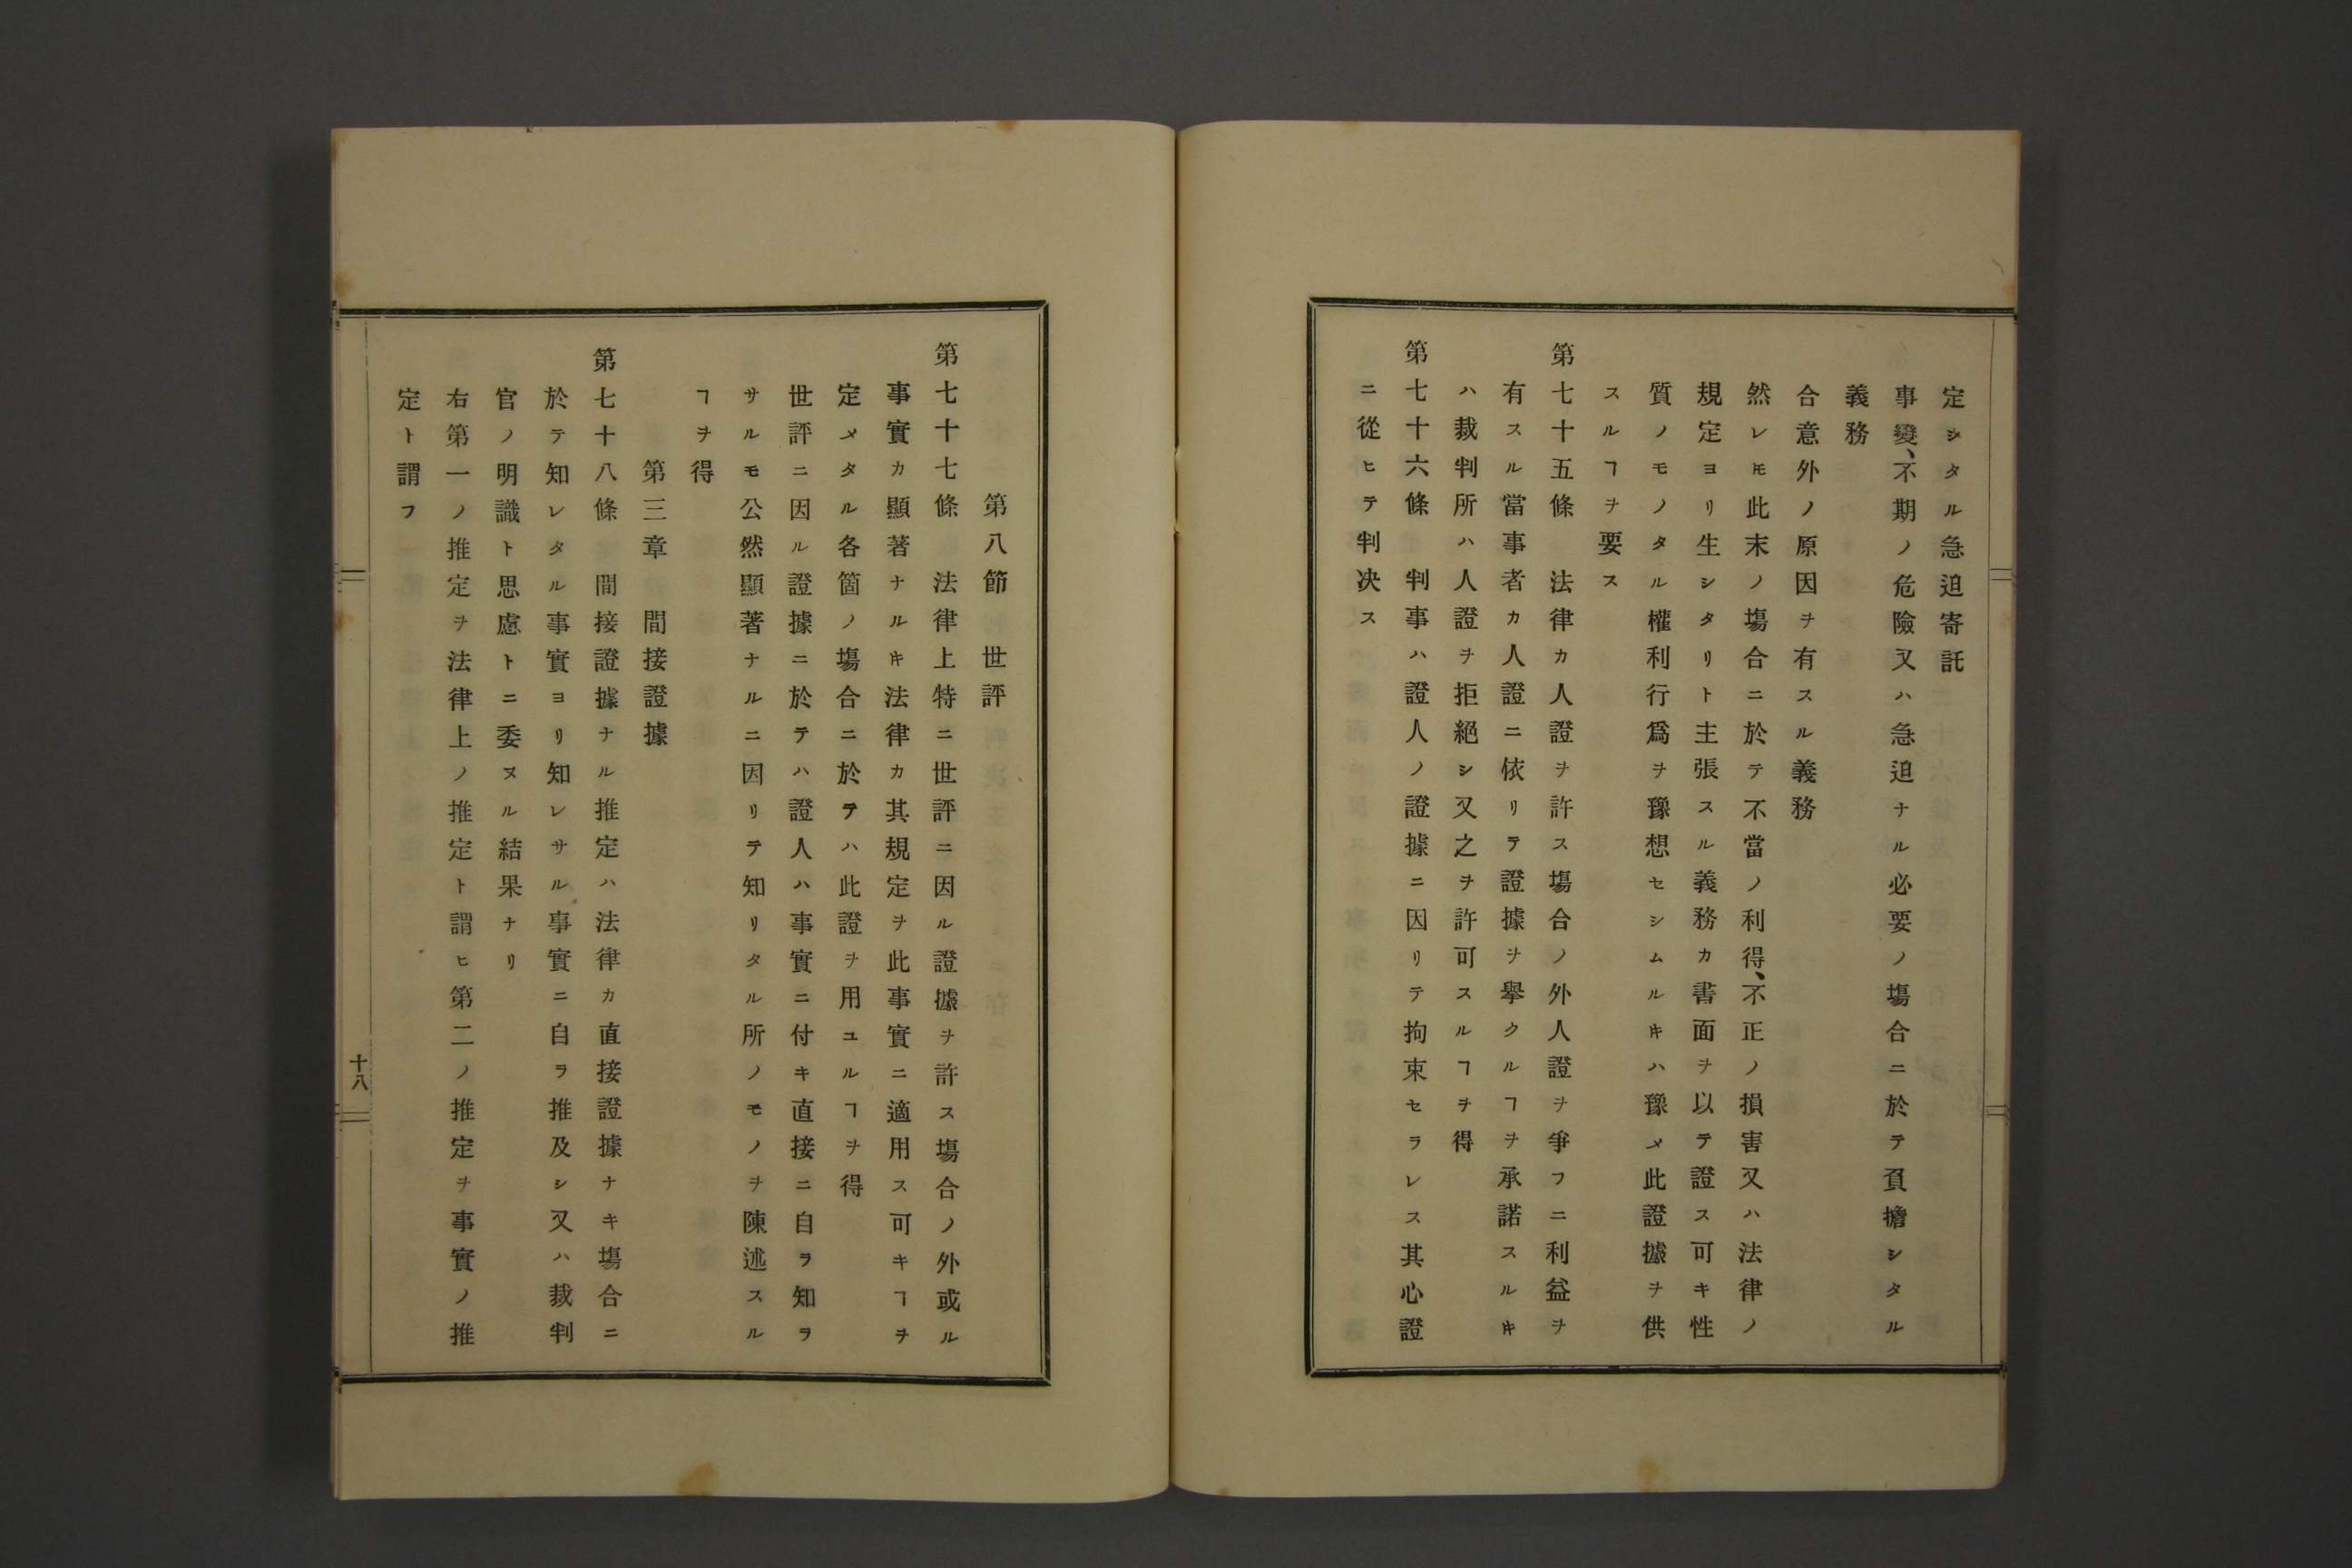 定シタル急迫寄託
事變、不期ノ危險又ハ急迫ナル必要ノ塲合ニ於テ負擔シタル
義務
合意外ノ原因ヲ有スル義務
然レ𪜈此末ノ塲合ニ於テ不當ノ利得、不正ノ損害又ハ法律ノ
規定ヨリ生シタリト主張スル義務カ書面ヲ以テ證ス可キ性
質ノモノタル權利行爲ヲ豫想セシムルキハ豫メ此證據ヲ供
スルヿヲ要ス
第七十五條　法律カ人證ヲ許ス塲合ノ外人證ヲ爭フニ利益ヲ
有スル當事者カ人證ニ依リテ證據ヲ擧クルヿヲ承諾スルキ
ハ裁判所ハ人證ヲ拒絕シ又之ヲ許可スルヿヲ得
第七十六條　判事ハ證人ノ證據ニ因リテ拘束セラレス其心證
ニ從ヒテ判决ス
第八節　世評
第七十七條　法律上特ニ世評ニ因ル證據ヲ許ス塲合ノ外或ル
事實カ顯著ナルキ法律カ其規定ヲ此事實ニ適用ス可キヿヲ
定メタル各箇ノ塲合ニ於テハ此證ヲ用ユルヿヲ得
世評ニ因ル證據ニ於テハ證人ハ事實ニ付キ直接ニ自ラ知ラ
サルモ公然顯著ナルニ因リテ知リタル所ノモノヲ陳述スル
ヿヲ得
第三章　間接證據
第七十八條　間接證據ナル推定ハ法律カ直接證據ナキ塲合ニ
於テ知レタル事實ヨリ知レサル事實ニ自ラ推及シ又ハ裁判
官ノ明識ト思慮トニ委ヌル結果ナリ
右第一ノ推定ヲ法律上ノ推定ト謂ヒ第二ノ推定ヲ事實ノ推
定ト謂フ
十八